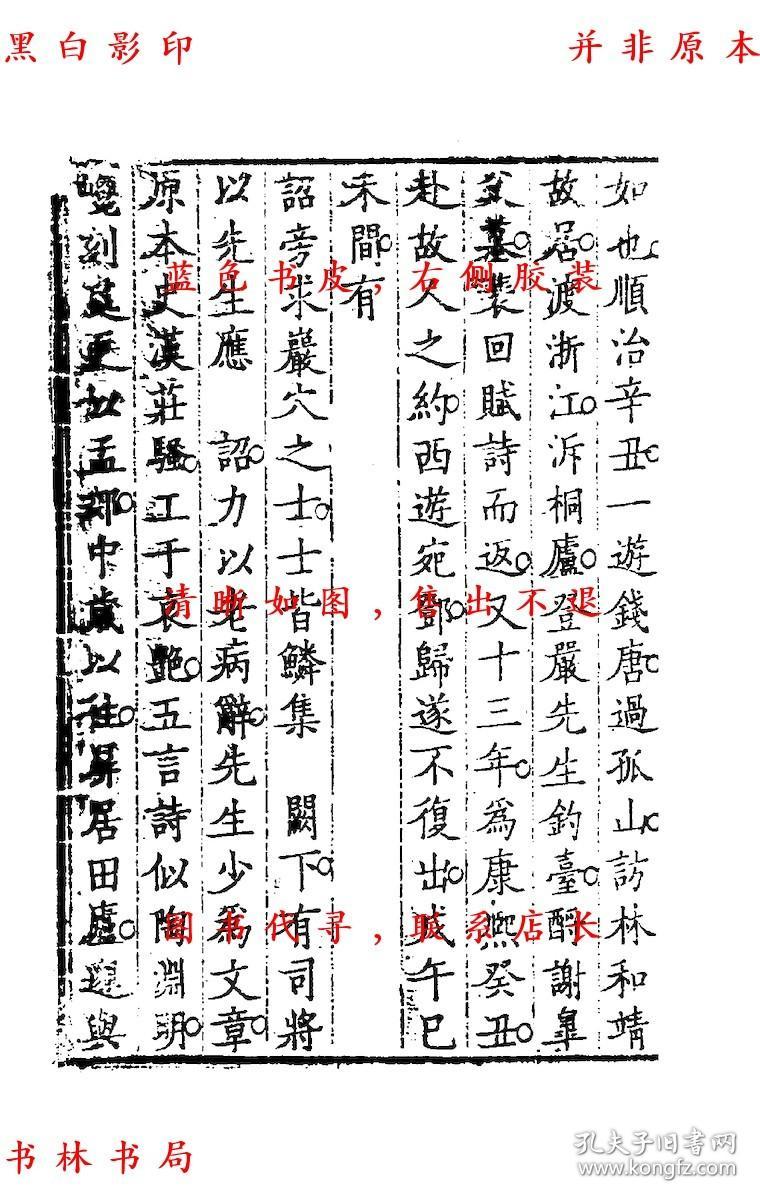 黑白影印
并非原本
如也順治辛丑一遊錢唐過孤山訪林和靖
故居渡浙江泝桐廬登嚴先生釣臺酹謝皐
父墓裴回賦詩而返又十三年為康熙癸丑
赴故人之約西遊宛鄧歸遂不復出戊午巳
未間有
詔旁求巖穴之士士皆鱗集 闕下有司將
以先生應 詔力以老病辭先生少為文章
原本史漢莊騷工于哀艷五言詩似陶淵明
刻 更以孟 中歲以 居田廬 與
蓝色书皮，右侧胶装
清晰如图，售出不退
图书代寻，联系店长
书林书局
孔夫子旧书网
www.kongfz.com